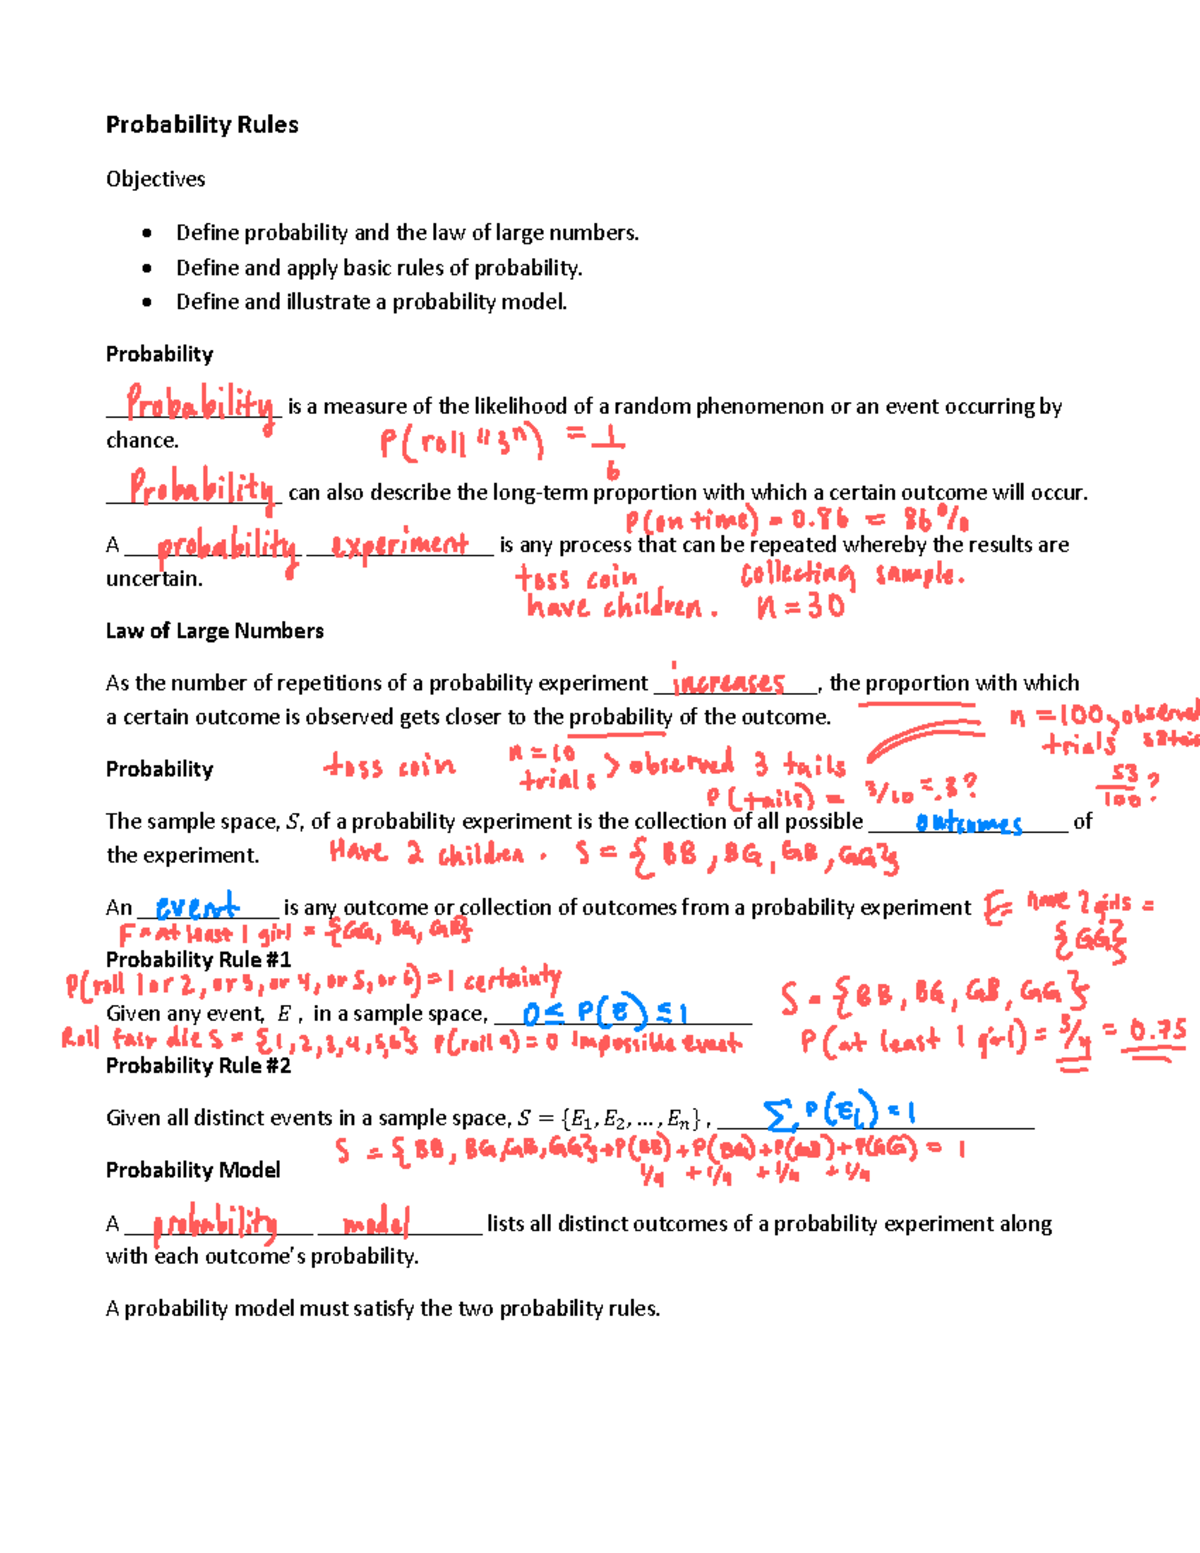 Probability Rules
Objectives
• Define probability and the law of large numbers.
• Define and apply basic rules of probability.
• Define and illustrate a probability model.
Probability
Probability is a measure of the likelihood of a random phenomenon or an event occurring by
chance. P(roll "3") = 1/6
Probability can also describe the long-term proportion with which a certain outcome will occur.
P(on time) = 0.86 = 86%
A probability experiment is any process that can be repeated whereby the results are
uncertain. toss coin collecting sample.
have children. n = 30
Law of Large Numbers
As the number of repetitions of a probability experiment increases, the proportion with which
a certain outcome is observed gets closer to the probability of the outcome. n = 100, observed
trials
Probability toss coin n = 10 trials > observed 3 tails 53/100?
P(tails) = 3/10 = .3?
The sample space, S, of a probability experiment is the collection of all possible outcomes of
the experiment. Have 2 children. S = {BB, BG, GB, GG}
An event is any outcome or collection of outcomes from a probability experiment E = have 2 girls =
F = at least 1 girl = {GG, BG, GB} {GG}
Probability Rule #1
P(roll 1 or 2, or 3, or 4, or 5, or 6) = 1 certainty S = {BB, BG, GB, GG}
Given any event, E , in a sample space, 0 ≤ P(E) ≤ 1
Roll fair die S = {1, 2, 3, 4, 5, 6} P(roll 9) = 0 Impossible event P(at least 1 girl) = 3/4 = 0.75
Probability Rule #2
Given all distinct events in a sample space, S = {E₁, E₂, … , Eₙ} , ∑ P(Ei) = 1
S = {BB, BG, GB, GG} → P(BB) + P(BG) + P(GB) + P(GG) = 1
Probability Model 1/4 + 1/4 + 1/4 + 1/4
A probability model lists all distinct outcomes of a probability experiment along
with each outcome's probability.
A probability model must satisfy the two probability rules.